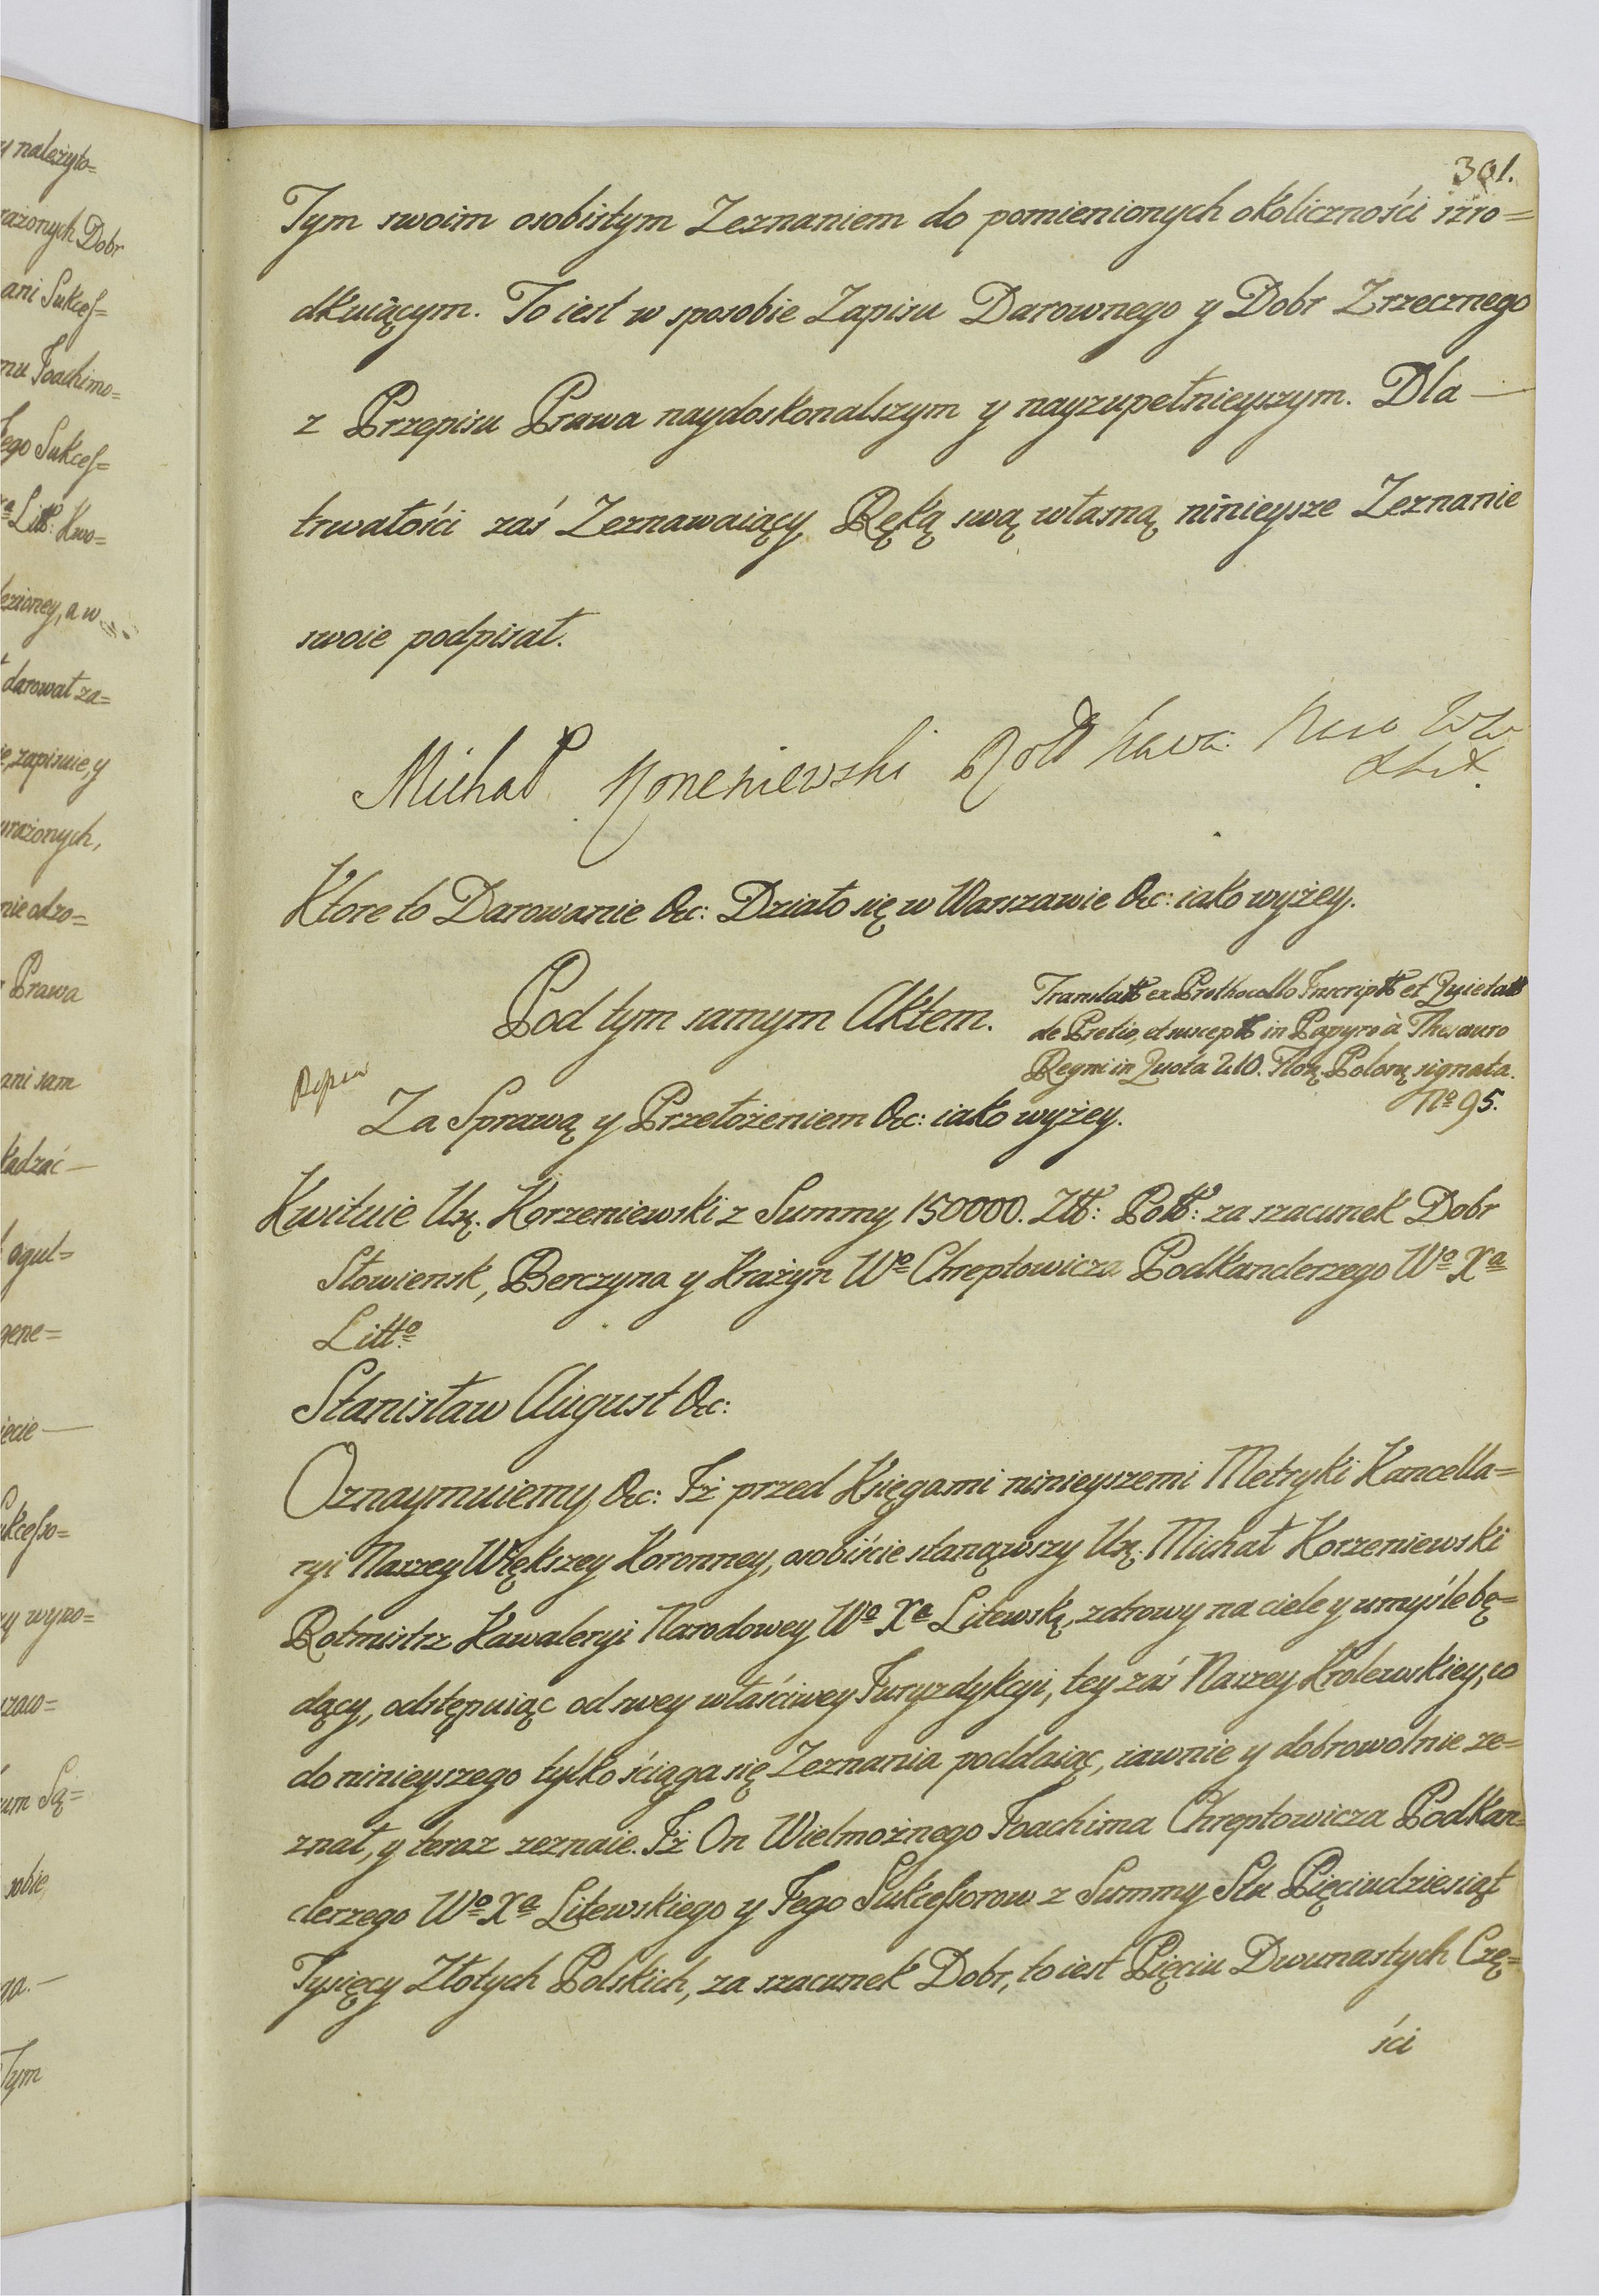 y należyto=
rażonych Dobr
ani Sukceſ=
mu Joachimo=
Jego Sukceſ=
Litt: Kwo=
a w
darował za=
zapisuie, y
rażonych,
nie odzo=
Prawa
ani sam
kadzać —
ogul=
gene=
ięcie —
ukceſso=
wypo=
um Są=
sobie
Tym
301.
Tym swoim osobistym Zeznaniem do pomienionych okoliczności szro=
dkuiącym. To iest w sposobie Zapisu Darownego y Dobr Zrzecznego
z Przepisu Prawa naydoskonalszym y nayzupełnieyszym. Dla —
trwałości zaś Zeznawaiący Ręką swą własną ninieysze Zeznanie
swoie podpisał.
Michał Korzeniewski Rott kawa: Naro WW
Ktore to Darowanie &c: Działo się w Warszawie &c: iako wyżey.
Pod tym samym Aktem.
Translatt ex Prothocollo Inscriptt et Quietatt
de Pretio, et susceptt in Papyro à Thesauro
Regni in Quota 210. Floŗ. Polonŗ signata.
Nº 95.
Za Sprawą y Przełożeniem &c: iako wyżey.
Kwituie Uŗ. Korzeniewski z Summy 150000. Złł: Poll: za szacunek Dobr
Słowiensk, Berczyna y Krażyn Wº Chreptowicza Podkanclerzego Wº Xª
Littº
Stanisław August &c:
Oznaymuiemy &c: Iż przed Księgami ninieyszemi Metryki Kancella=
ryi Naszey Większey Koronney, osobiście stanąwszy Uŗ. Michał Korzeniewski
Rotmistrz Kawaleryi Narodowey Wº Xª Litewskę, zdrowy na ciele y umyśle bę=
dący, odstępuiąc od swey właściwey Juryzdykcyi, tey zaś Naszey Krolewskiey, co
do ninieyszego tylko ściąga się Zeznania poddaiąc, iawnie y dobrowolnie ze=
znał, y teraz zeznaie. Iż On Wielmożnego Joachima Chreptowicza Podkan=
clerzego Wº Xª Litewskiego y Jego Sukceſsorow z Summy Sta Pięciudziesiąt
Tysięcy Złotych Polskich, za szacunek Dobr, to iest Pięciu Dwunastych Czę=
ści